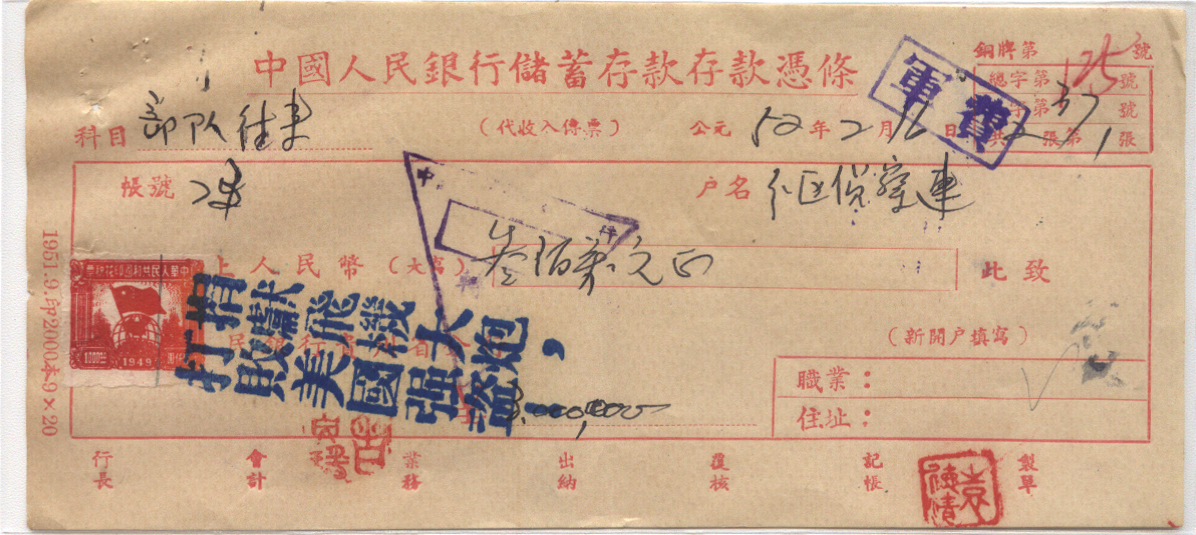 中國人民銀行儲蓄存款存款憑條
銅牌第 號
總字第 125 號
字第 37 號
共 2 張第 1 張
軍費
科目 部队往来
(代收入傳票)
公元 52 年 2 月 日
帳號
户名
上人民幣(大寫)叁佰萬元正
此致
(新開户填寫)
職業:
住址:
捐獻飛機大炮,
打敗美國强盗!
3,000,000
1951.9.印2000本9×20
中華人民共和國印花稅票
1949
行長
會計
業務
出納
覆核
記帳
製單